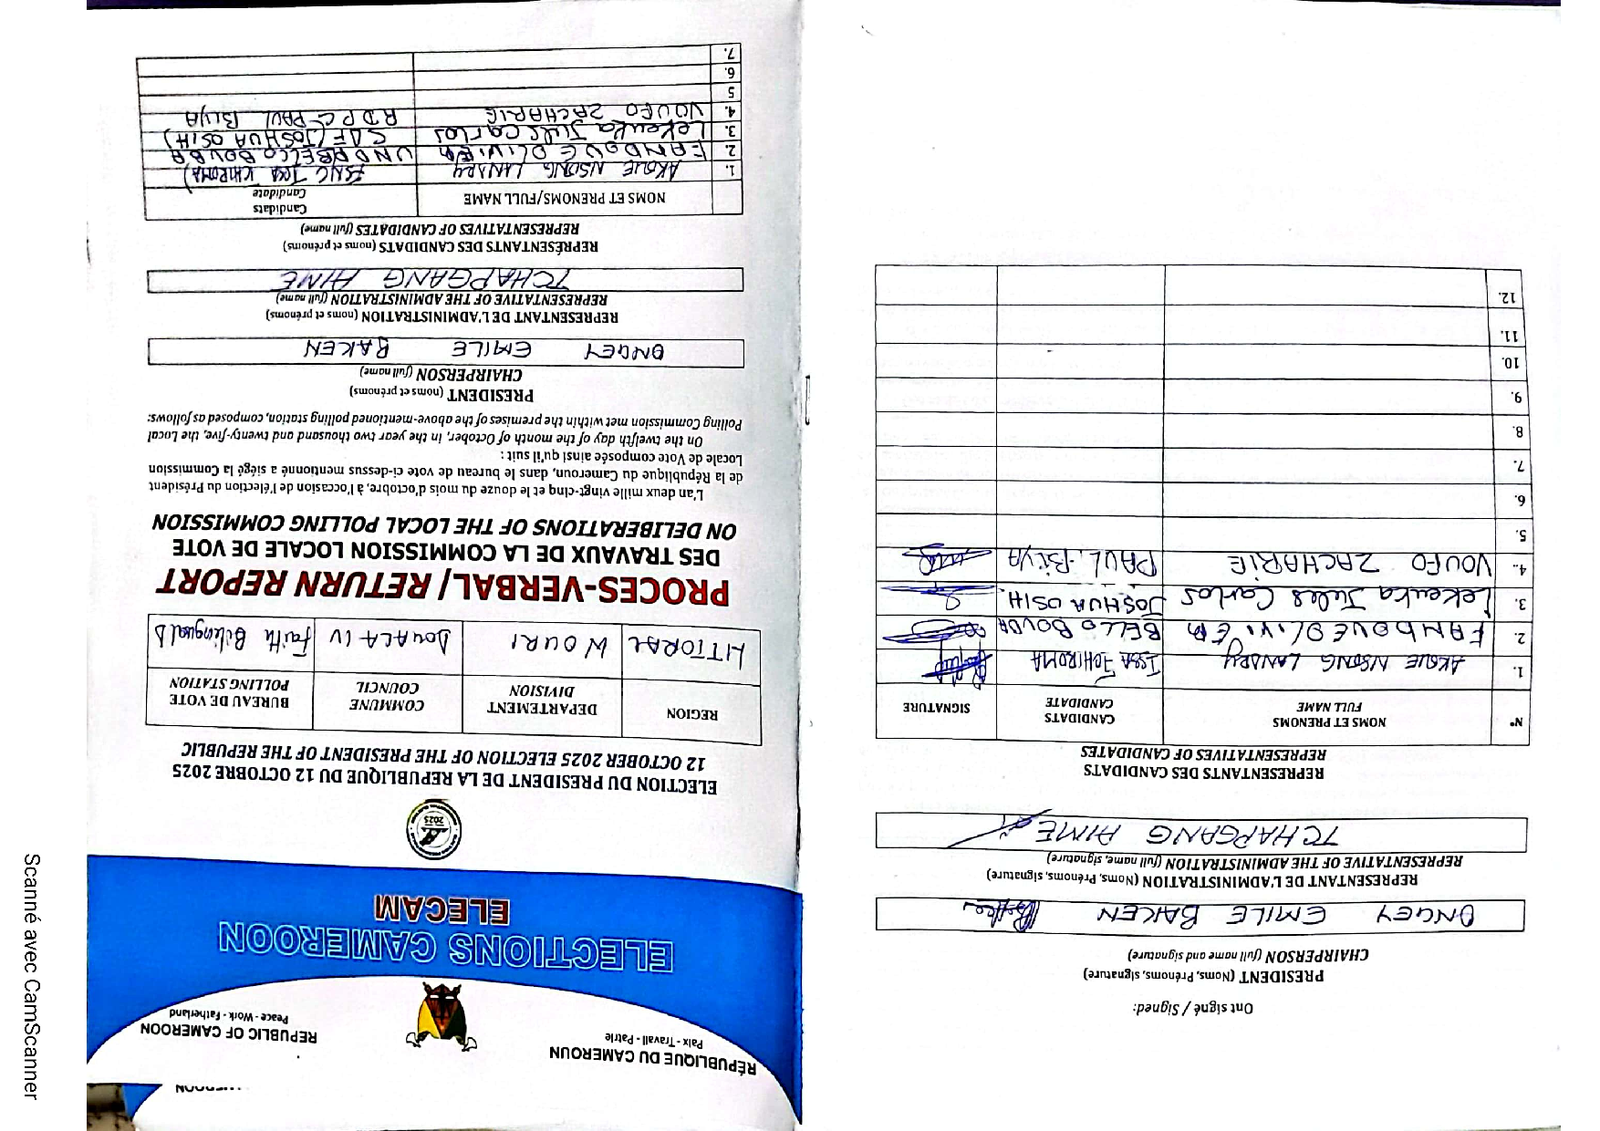 RÉPUBLIQUE DU CAMEROUN
Paix - Travail - Patrie
REPUBLIC OF CAMEROON
Peace - Work - Fatherland
ELECTIONS CAMEROON
ELECAM
2025
ELECTION DU PRESIDENT DE LA REPUBLIQUE DU 12 OCTOBRE 2025
12 OCTOBER 2025 ELECTION OF THE PRESIDENT OF THE REPUBLIC
REGION
DEPARTEMENT
DIVISION
COMMUNE
COUNCIL
BUREAU DE VOTE
POLLING STATION
LITTORAL
WOURI
DOUALA IV
Faith Bilingual
PROCES-VERBAL/ RETURN REPORT
DES TRAVAUX DE LA COMMISSION LOCALE DE VOTE
ON DELIBERATIONS OF THE LOCAL POLLING COMMISSION
L'an deux mille vingt-cinq et le douze du mois d'octobre, à l'occasion de l'élection du Président
de la République du Cameroun, dans le bureau de vote ci-dessus mentionné a siégé la Commission
Locale de Vote composée ainsi qu'il suit :
On the twelfth day of the month of October, in the year two thousand and twenty-five, the Local
Polling Commission met within the premises of the above-mentioned polling station, composed as follows:
PRESIDENT (noms et prénoms)
CHAIRPERSON (full name)
ONGEY EMILE BAKEN
REPRESENTANT DE L'ADMINISTRATION (noms et prénoms)
REPRESENTATIVE OF THE ADMINISTRATION (full name)
TCHAPGANG AIME
REPRÉSENTANTS DES CANDIDATS (noms et prénoms)
REPRESENTATIVES OF CANDIDATES (full name)
NOMS ET PRENOMS/FULL NAME
Candidats
Candidate
1. AKOUE NSONG LANDRY FSNC Issa TCHIROMA)
2. FANDOUE OLIVIER UNDP BELLO BOUBA
3. Lekeuka Jules Carlos SDF (JOSHUA OSIH)
4. VOUFO ZACHARIE RDPC PAUL BIYA
5
6.
7.
Ont signé / Signed:
PRESIDENT (Noms, Prénoms, signature)
CHAIRPERSON (full name and signature)
ONGEY EMILE BAKEN
REPRESENTANT DE L'ADMINISTRATION (Noms, Prénoms, signature)
REPRESENTATIVE OF THE ADMINISTRATION (full name, signature)
TCHAPGANG AIME
REPRESENTANTS DES CANDIDATS
REPRESENTATIVES OF CANDIDATES
N°
NOMS ET PRENOMS
FULL NAME
CANDIDATS
CANDIDATE
SIGNATURE
1. AKOUE NSONG LANDRY ISSA TCHIROMA
2. FANDOUE OLIVIER BELLO BOUBA
3. Lekeuka Jules Carlos JOSHUA OSIH.
4. VOUFO ZACHARIE PAUL BIYA
5.
6.
7.
8.
9.
10.
11.
12.
Scanné avec CamScanner